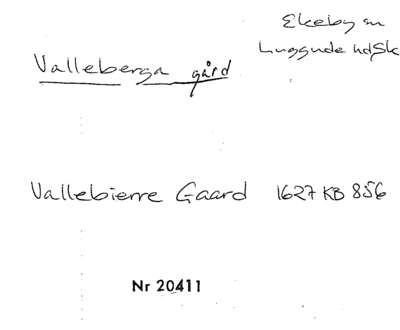 Ekeby sn
Luggude hd Sk
Valleberga gård
Vallebierre Gaard 1627 KB 856
Nr 20411